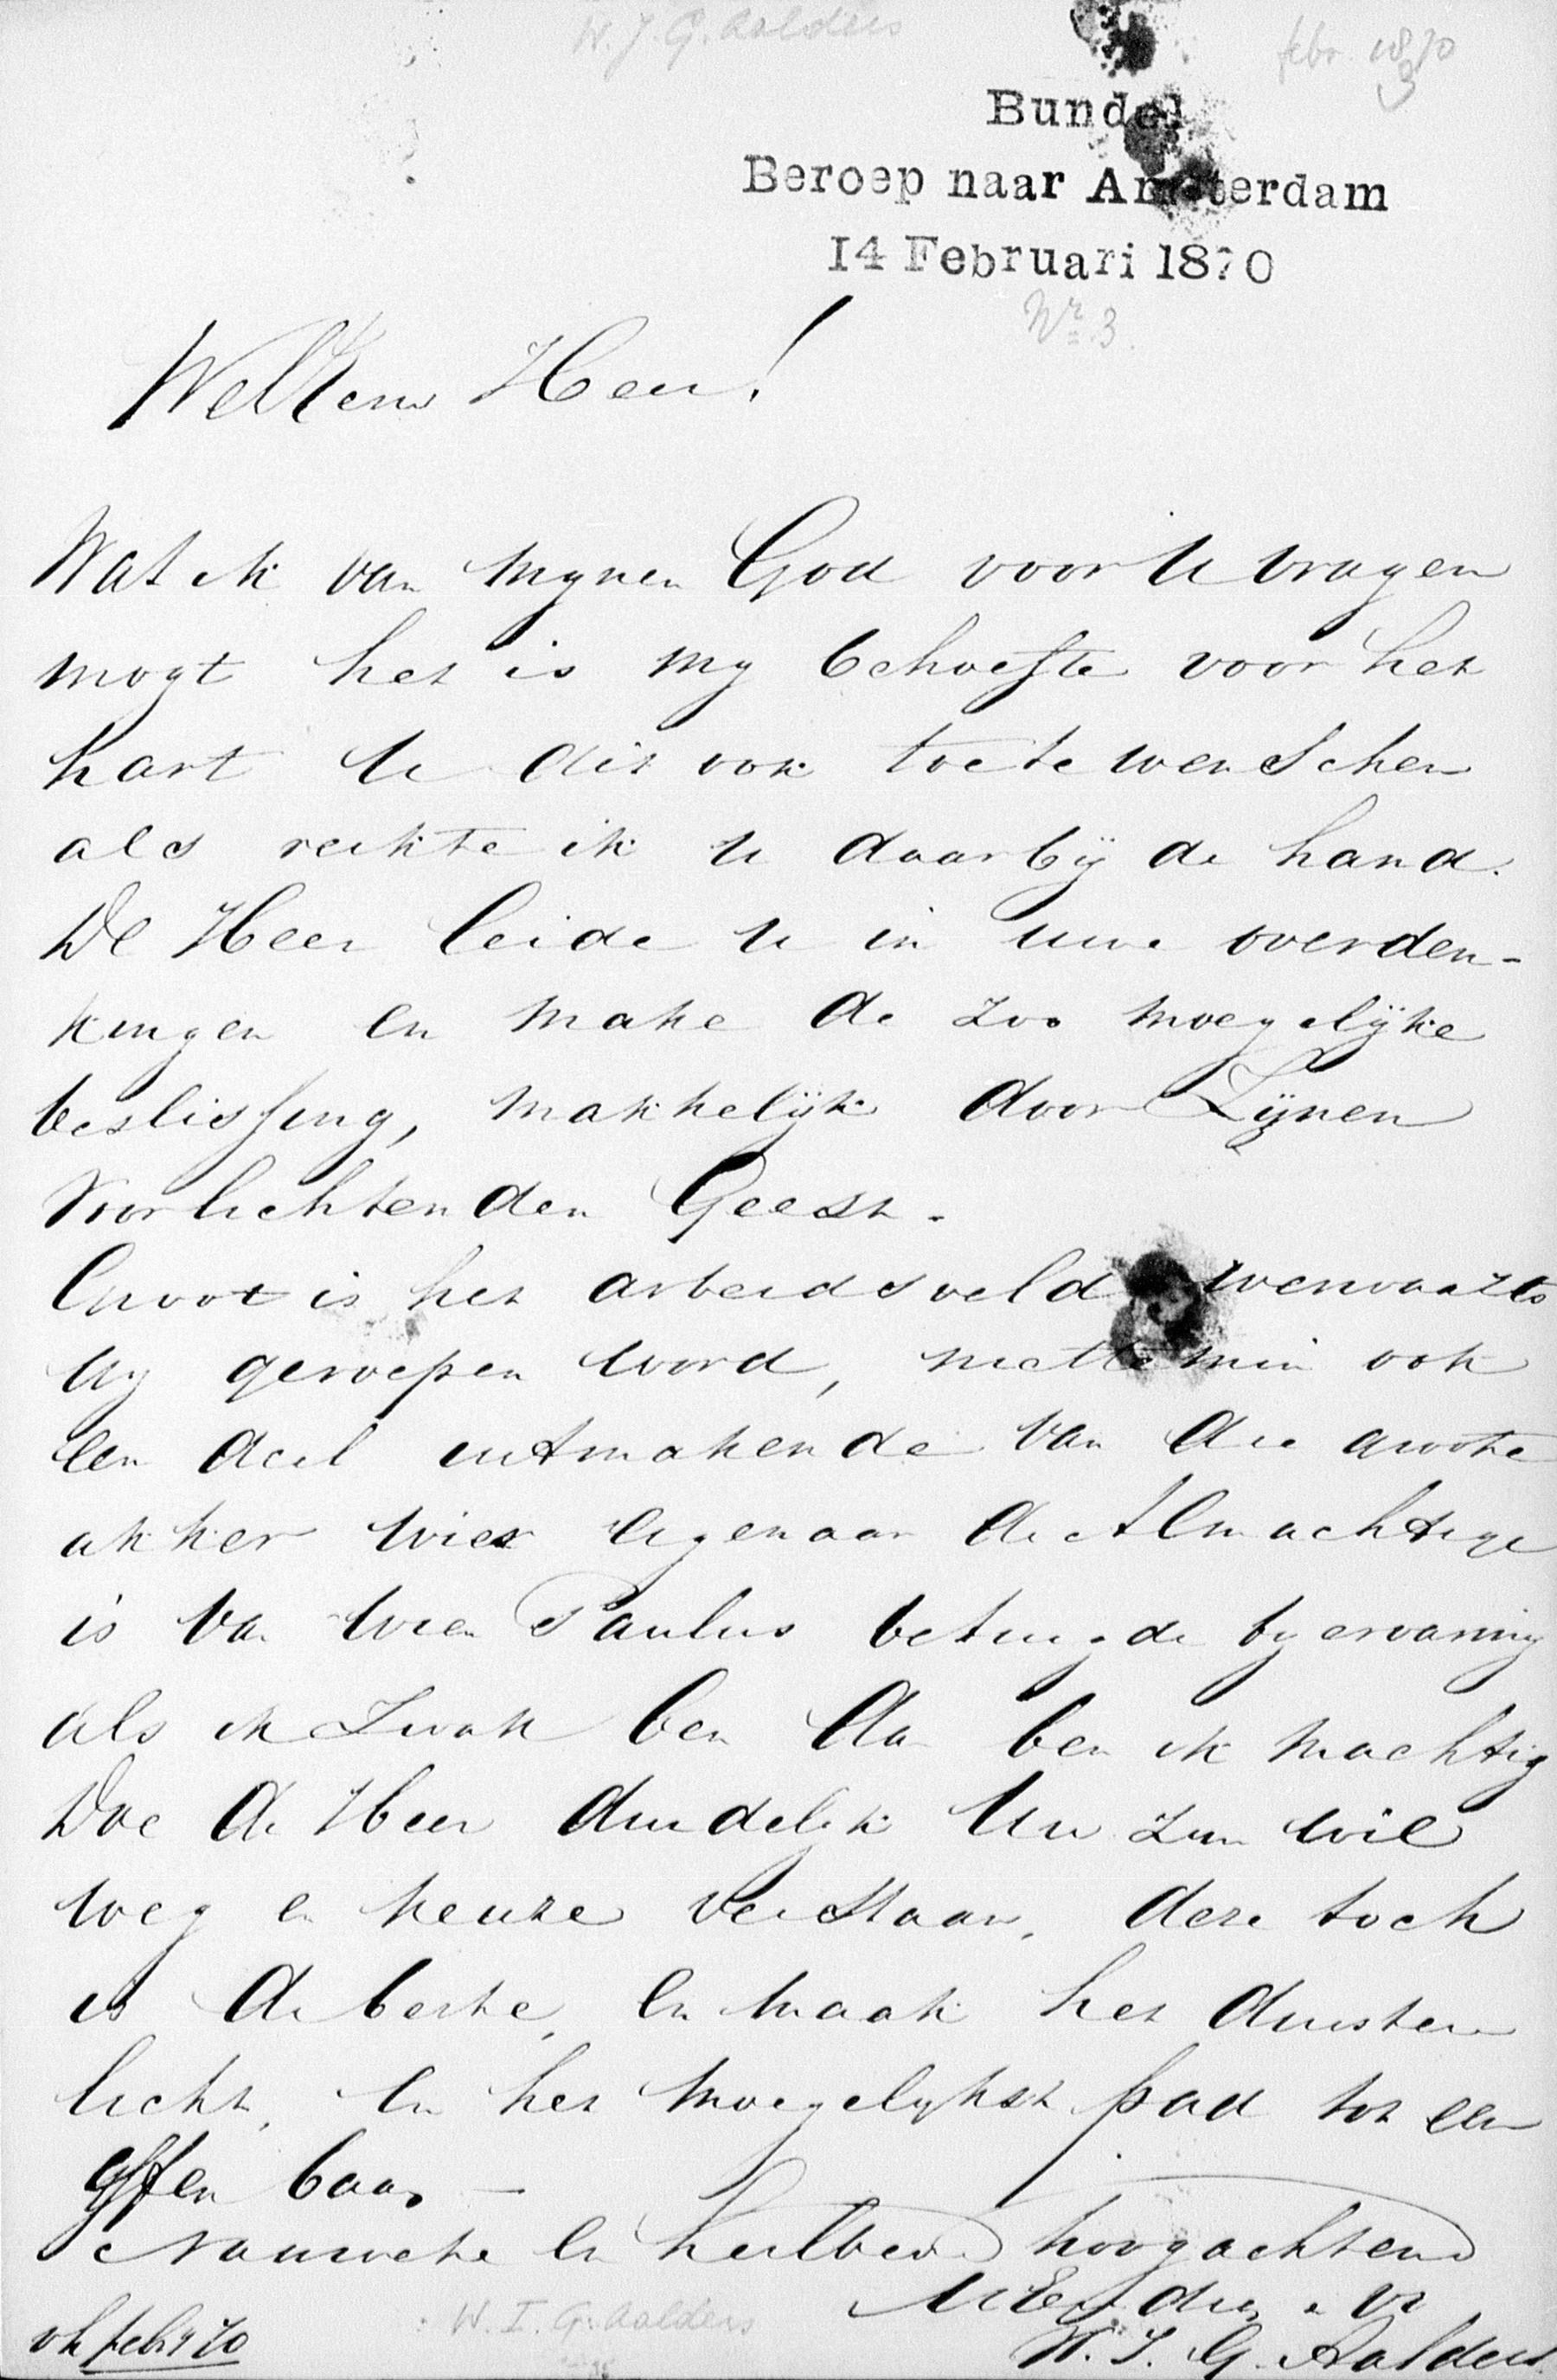 W. J. G. Aalders
febr. 1870
3
Bundel
Beroep naar Amsterdam
14 Februari 1870
Nr. 3.
WelEerw Heer!
Wat ik van mynen God voor U vragen
mogt het is my behoefte voor het
hart U dit ook toe te wenschen
als reikte ik U daarbij de hand.
De Heer leide U in uwe overden-
kingen en make de zoo moegelijke
beslissing, makkelijk door Zijnen
Voorlichtenden Geest.
Groot is het arbeidsveld werwaarts
Uy geroepen word, niettemin ook
een deel uitmakende van die groote
akker wies eigenaar de Almachtige
is van wien Paulus betuigde by ervaring
als ik zwak ben dan ben ik machtig
Doe de Heer duidelijk Uw zijn wil
weg en keuze verstaan, deze toch
is de beste, en maak het duister
licht, en het moegelykst pad tot een
effen baan. —
Namoete en heilbede hoogachtend
UWEw. dw. dr
W. J. G. Aalders
febr 70
W. I. G. Aalders